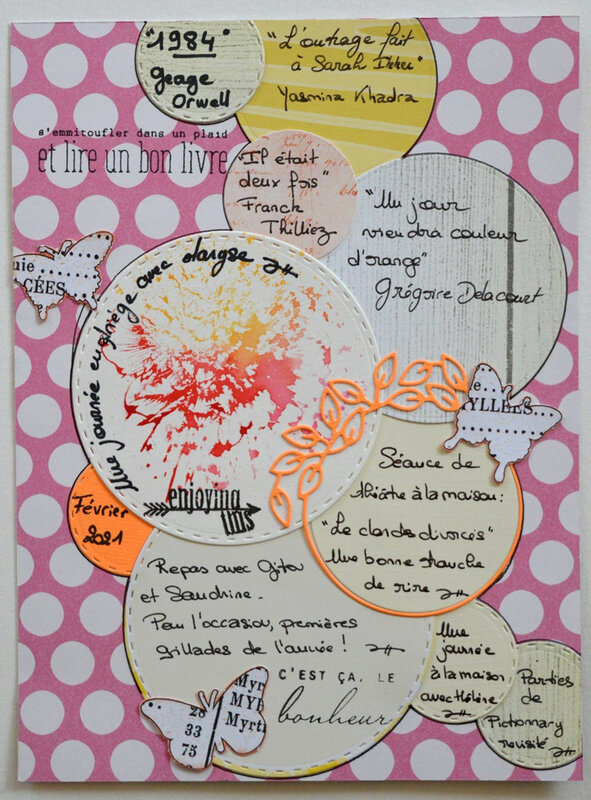 "1984"
Geage
Orwell
"L'outrage fait
à Sarah Ikker"
Yasmina Khadra
s'emmitoufler dans un plaid
et lire un bon livre
"Il était
deux fois"
Franck
Thilliez
"Un jour
viendra couleur
d'orange"
Grégoire Delacourt
uie
CÉES.
Une journée en Ariège avec
e.
XYLLÉES.
enjoying
this
Février
2021
Séance de
théâtre à la maison:
"Le clan des divorcés"
Une bonne tranche
de rire
Repas avec Gitou
et Sandrine.
Pour l'occasion, premières
grillades de l'année !
C'EST ÇA, LE
bonheur
Myr
MYR
Myrti
28
33
75
Une
journée
à la maison
avec Hélène
Parties
de
Pictionnary
revisité